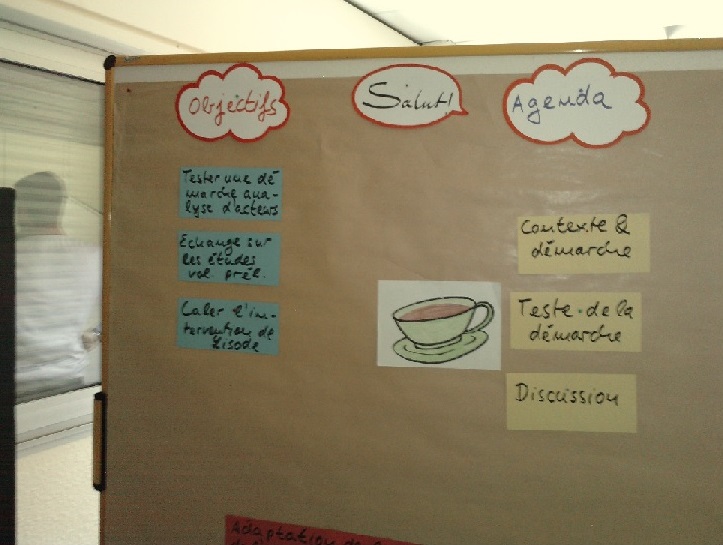 Objectifs
Salut!
Agenda
Tester une dé
marche ana-
lyse d'acteurs
Echange sur
les études
vol. prél.
Caler l'in-
tervention de
Lisode
Contexte &
démarche
Teste de la
démarche
Discussion
Adaptation de